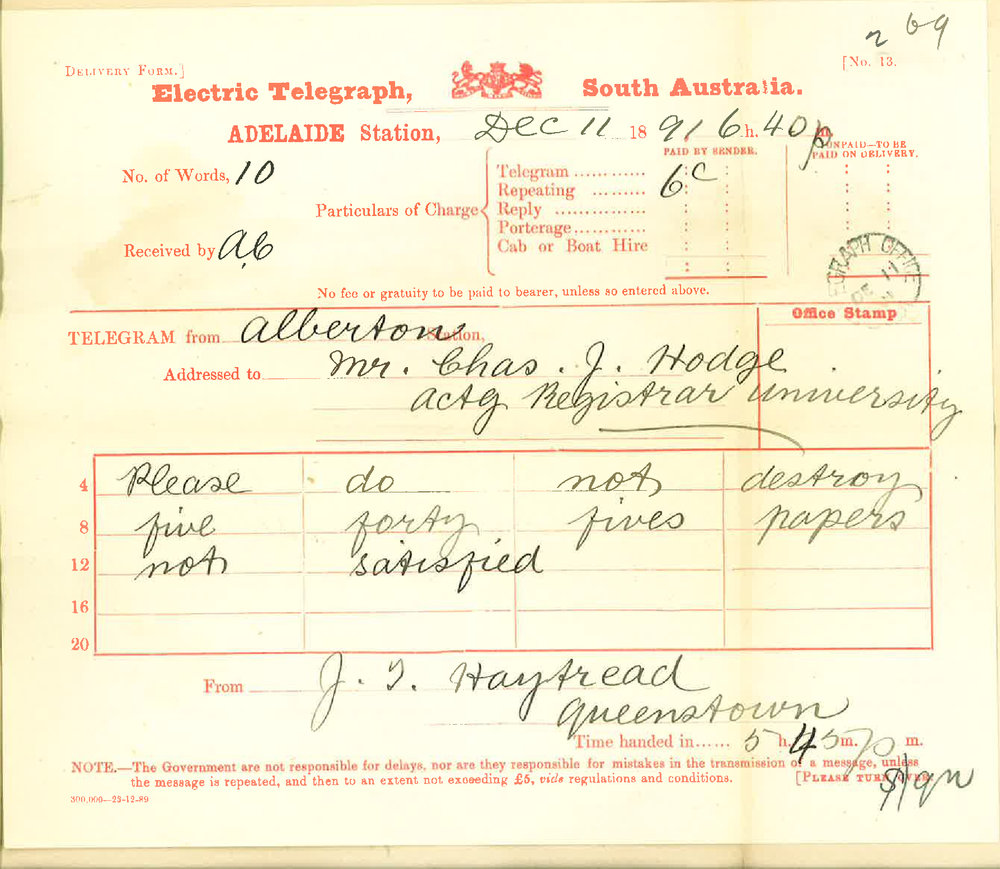 2 69
DELIVERY FORM.] [No. 13.
Electric Telegraph, South Australia.
ADELAIDE Station, Dec 11 1891, 6 h. 40 p m.
No. of Words, 10
Received by A.C
Particulars of Charge
PAID BY SENDER.
UNPAID—TO BE PAID ON DELIVERY.
Telegram ............ 6c
Repeating .........
Reply ...............
Porterage.............
Cab or Boat Hire
No fee or gratuity to be paid to bearer, unless so entered above.
GRAPH OFFICE
DE 11
Office Stamp
TELEGRAM from Alberton Station,
Addressed to Mr. Chas. J. Hodge
Actg Registrar University
4 Please do not destroy
8 five forty fives papers
12 not satisfied
16
20
From J. T. Haytread
Queenstown
Time handed in...... 5 h. 45 m. p m.
NOTE.—The Government are not responsible for delays, nor are they responsible for mistakes in the transmission of a message, unless
the message is repeated, and then to an extent not exceeding £5, vide regulations and conditions. [PLEASE TURN OVER
300,000—23-12-89